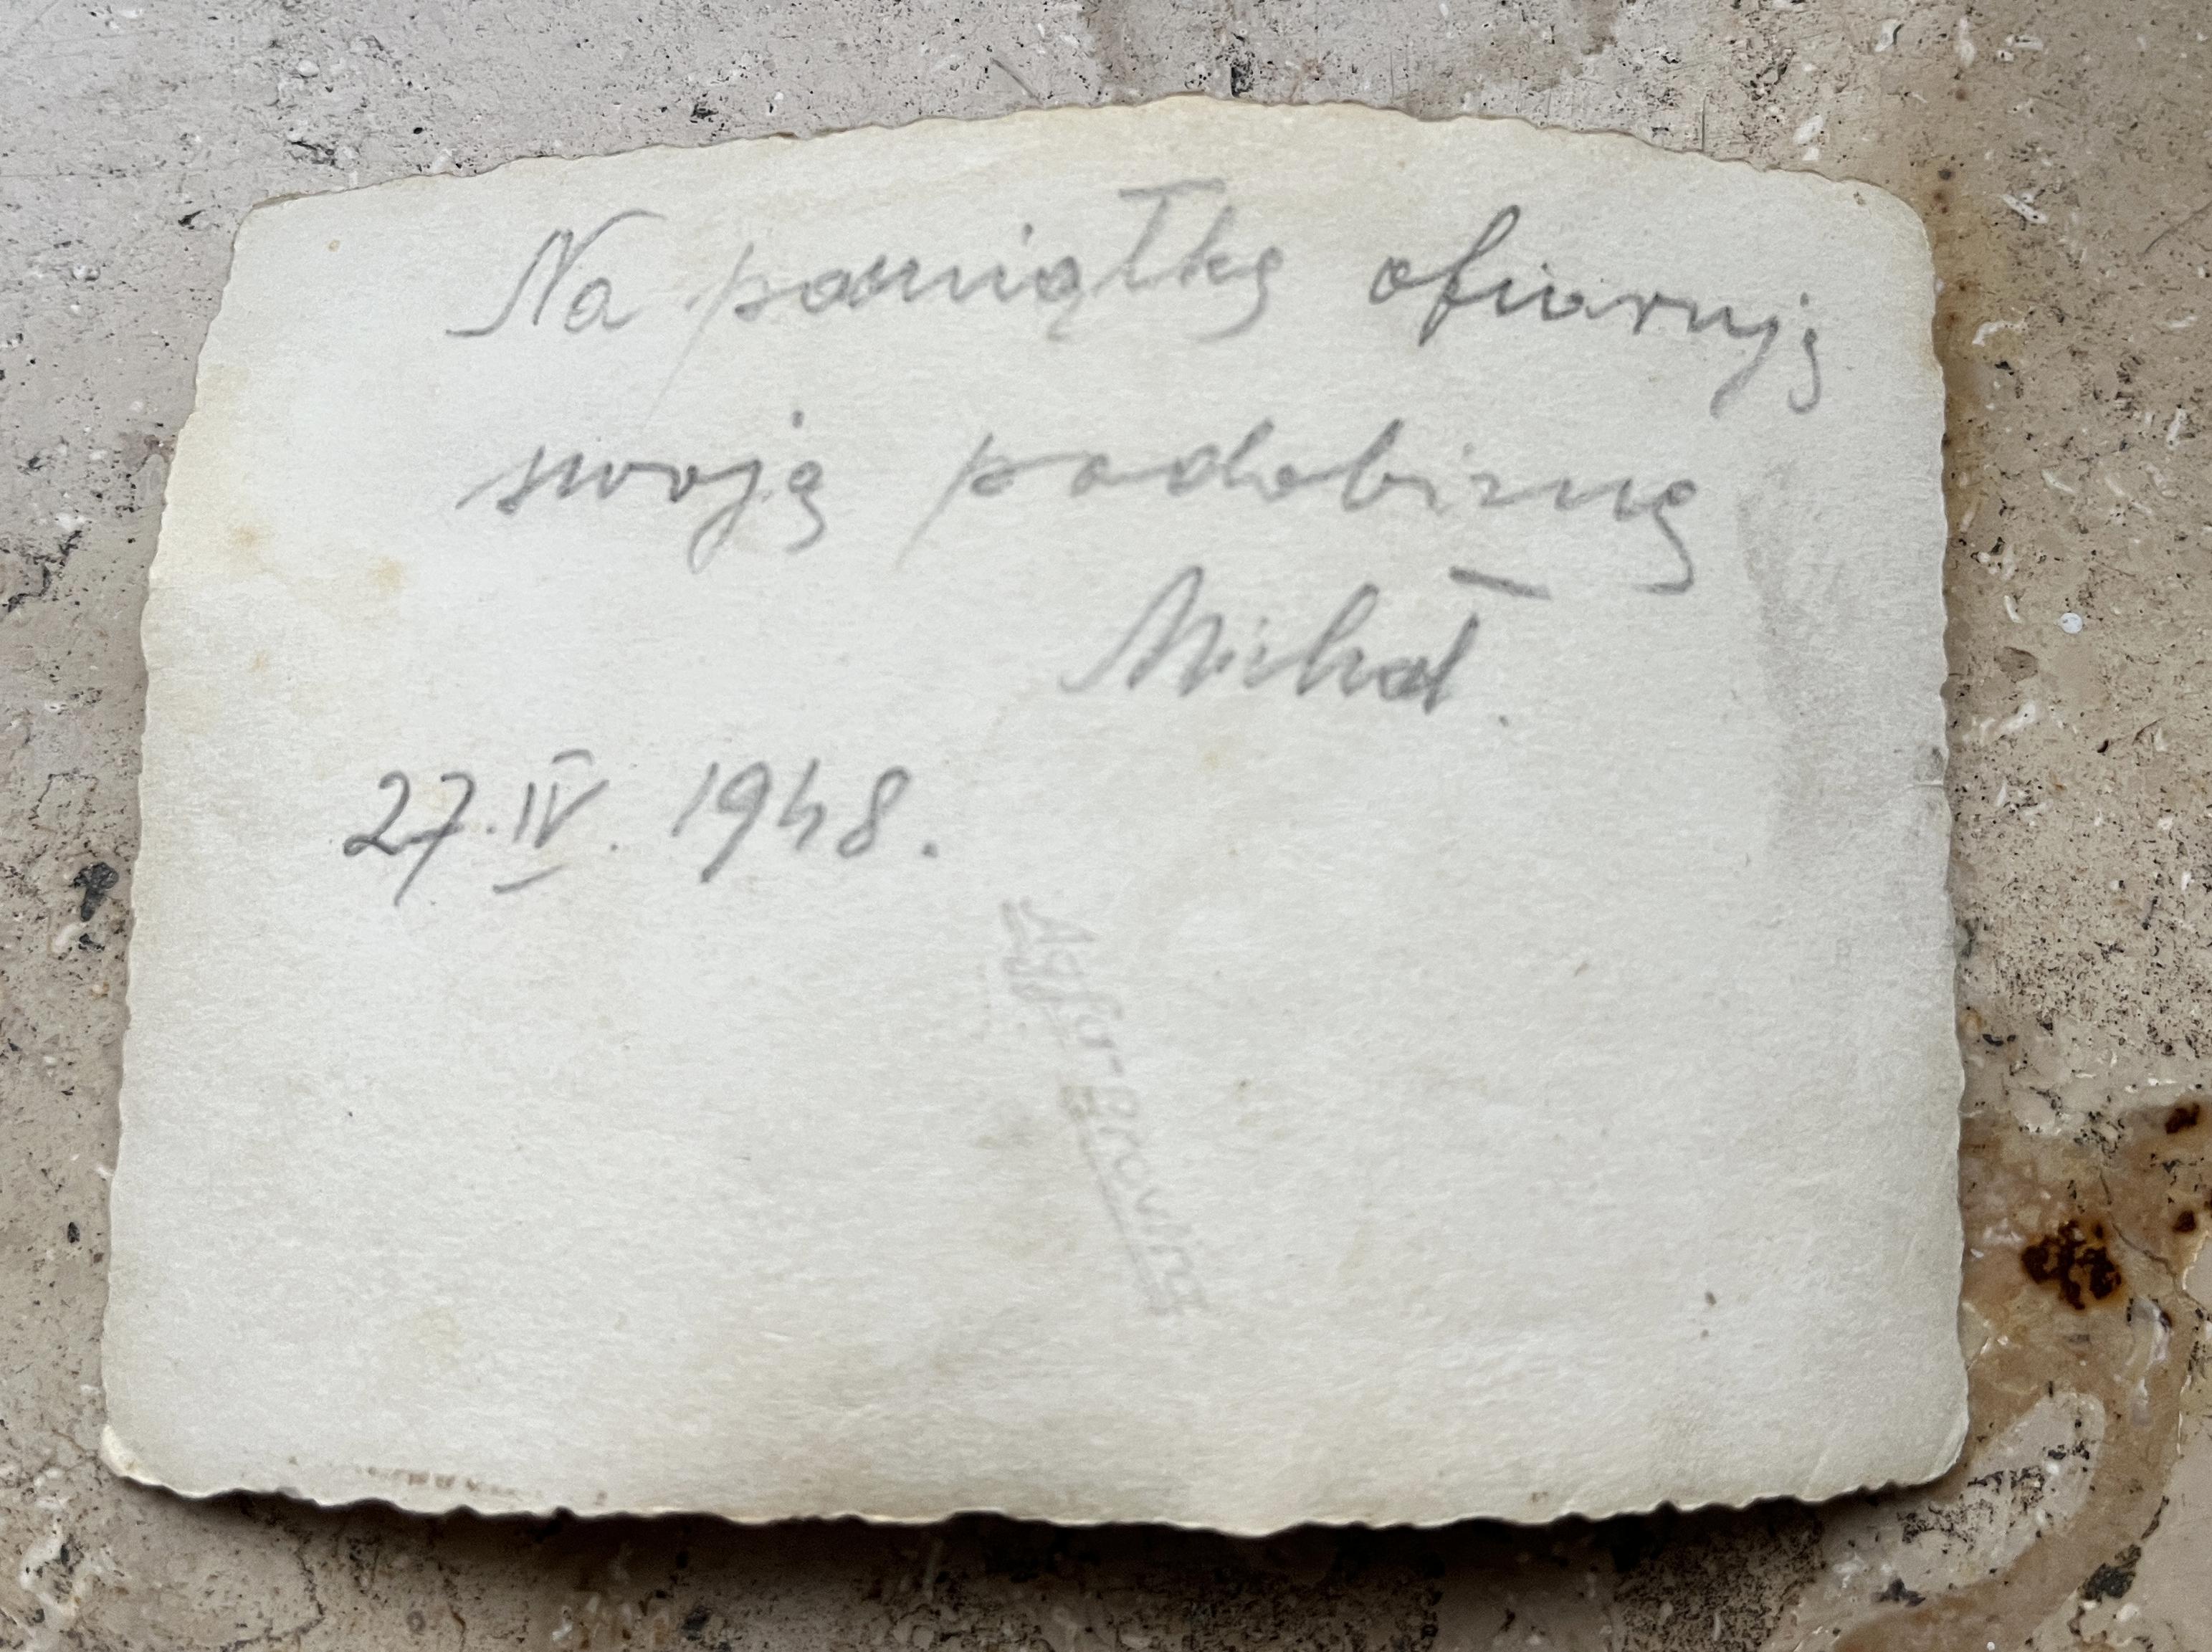 Na pamiątkę ofiaruję
swoję podobiznę
Michał.
27.IV. 1948.
Agfa-Brovira